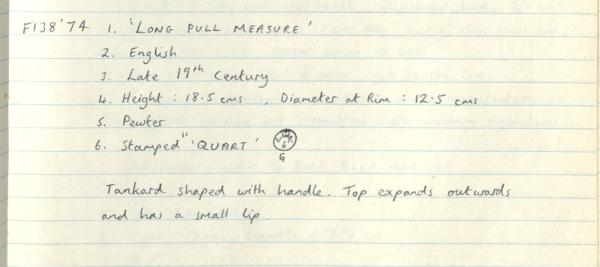 F138'74 1. 'LONG PULL MEASURE'
2. English
3. Late 19th Century
4. Height : 18.5 cms , Diameter at Rim : 12.5 cms
5. Pewter
6. Stamped" 'QUART' V R 6 G
Tankard shaped with handle. Top expands outwards
and has a small lip.